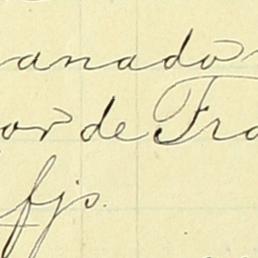 anado
or de Fra
fjs.